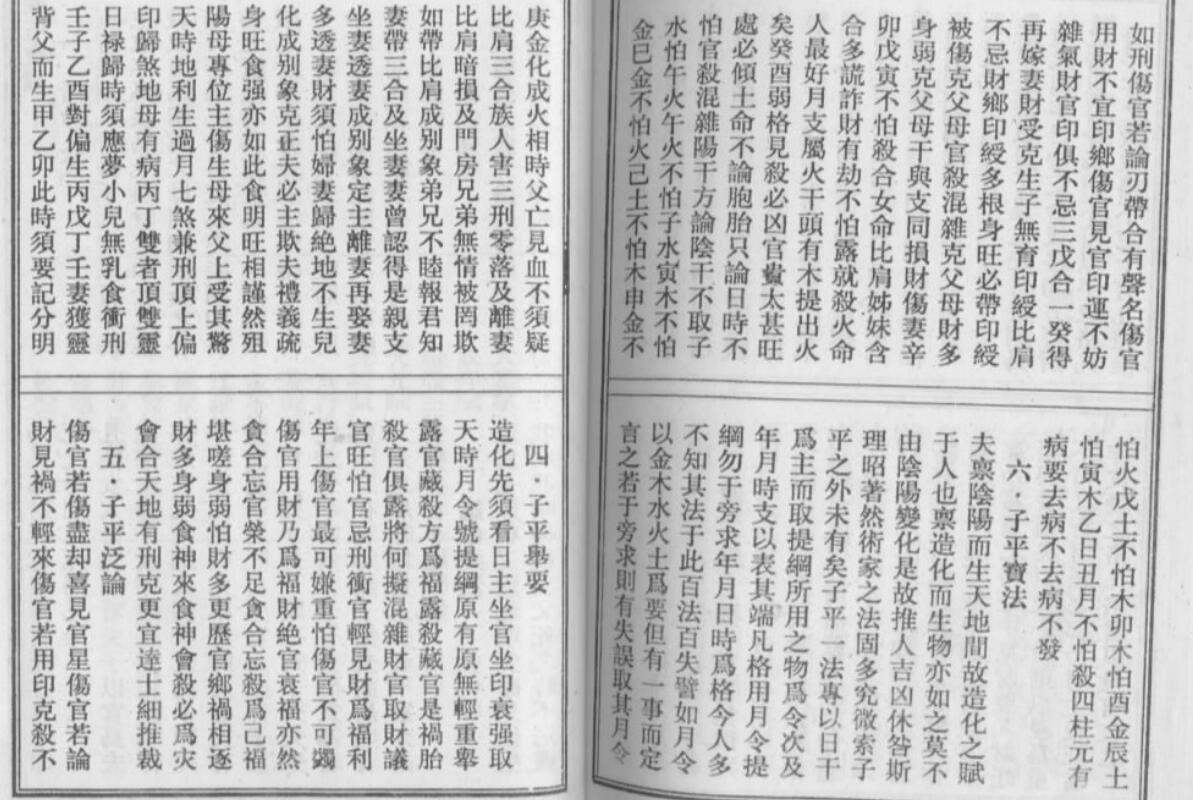 庚金化成火相時父亡見血不須疑
比肩三合族人害三刑零落及離妻
比肩暗損及門房兄弟無情被罔欺
如帶比肩成別象弟兄不睦報君知
妻帶三合及坐妻妻曾認得是親支
坐妻透妻成別象定主離妻再娶妻
多透妻財須怕婦妻歸絕地不生兒
化成別象克正夫必主欺夫禮義疏
身旺食强亦如此食明旺相謹然殂
陽母專位主傷生母來父上受其驚
天時地利生過月七煞兼刑頂上偏
印歸煞地母有病丙丁雙者頂雙靈
日祿歸時須應夢小兒無乳食衝刑
壬子乙酉對偏生丙戊丁壬妻獲靈
背父而生甲乙卯此時須要記分明
四·子平舉要
造化先須看日主坐官坐印衰强取
天時月令號提綱原有原無輕重舉
露官藏殺方爲福露殺藏官是禍胎
殺官俱露將何擬混雜財官取財議
官旺怕官忌刑衝官輕見財爲福利
年上傷官最可嫌重怕傷官不可蠲
傷官用財乃爲福財絕官衰福亦然
貪合忘官榮不足貪合忘殺爲己福
堪嗟身弱怕財多更歷官鄉禍相逐
財多身弱食神來食神會殺必爲灾
會合天地有刑克更宜達士細推裁
五·子平泛論
傷官若傷盡却喜見官星傷官若論
財見禍不輕來傷官若用印克殺不
如刑傷官若論刃帶合有聲名傷官
用財不宜印鄉傷官見官印運不妨
雜氣財官印俱不忌三戊合一癸得
再嫁妻財受克生子無育印綬比肩
不忌財鄉印綬多根身旺必帶印綬
被傷克父母官殺混雜克父母財多
身弱克父母干與支同損財傷妻辛
卯戊寅不怕殺合女命比肩姊妹含
合多謊詐財有劫不怕露就殺火命
人最好月支屬火干頭有木提出火
矣癸酉弱格見殺必凶官蚩太甚旺
處必傾土命不論胞胎只論日時不
怕官殺混雜陽干方論陰干不取子
水怕午火午火不怕子水寅木不怕
金巳金不怕火己土不怕木申金不
怕火戊土不怕木卯木怕酉金辰土
怕寅木乙日丑月不怕殺四柱元有
病要去病不去病不發
六·子平寶法
夫禀陰陽而生天地間故造化之賦
于人也禀造化而生物亦如之莫不
由陰陽變化是故推人吉凶休咎斯
理昭著然術家之法固多究微索子
平之外未有矣子平一法專以日干
爲主而取提綱所用之物爲令次及
年月時支以表其端凡格用月令提
綱勿于旁求年月日時爲格今人多
不知其法于此百法百失譬如月令
以金木水火土爲要但有一事而定
言之若于旁求則有失誤取其月令